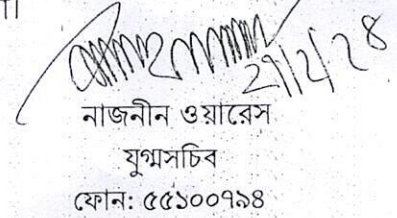 ২৭/২/২৪
নাজনীন ওয়ারেস
যুগ্মসচিব
ফোন: ৫৫১০০৭৯৪